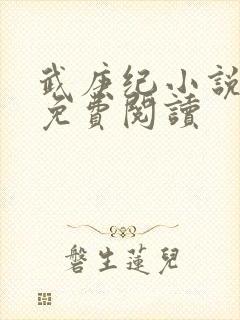 武庚纪小說
免費閱讀
磐生蓮兒